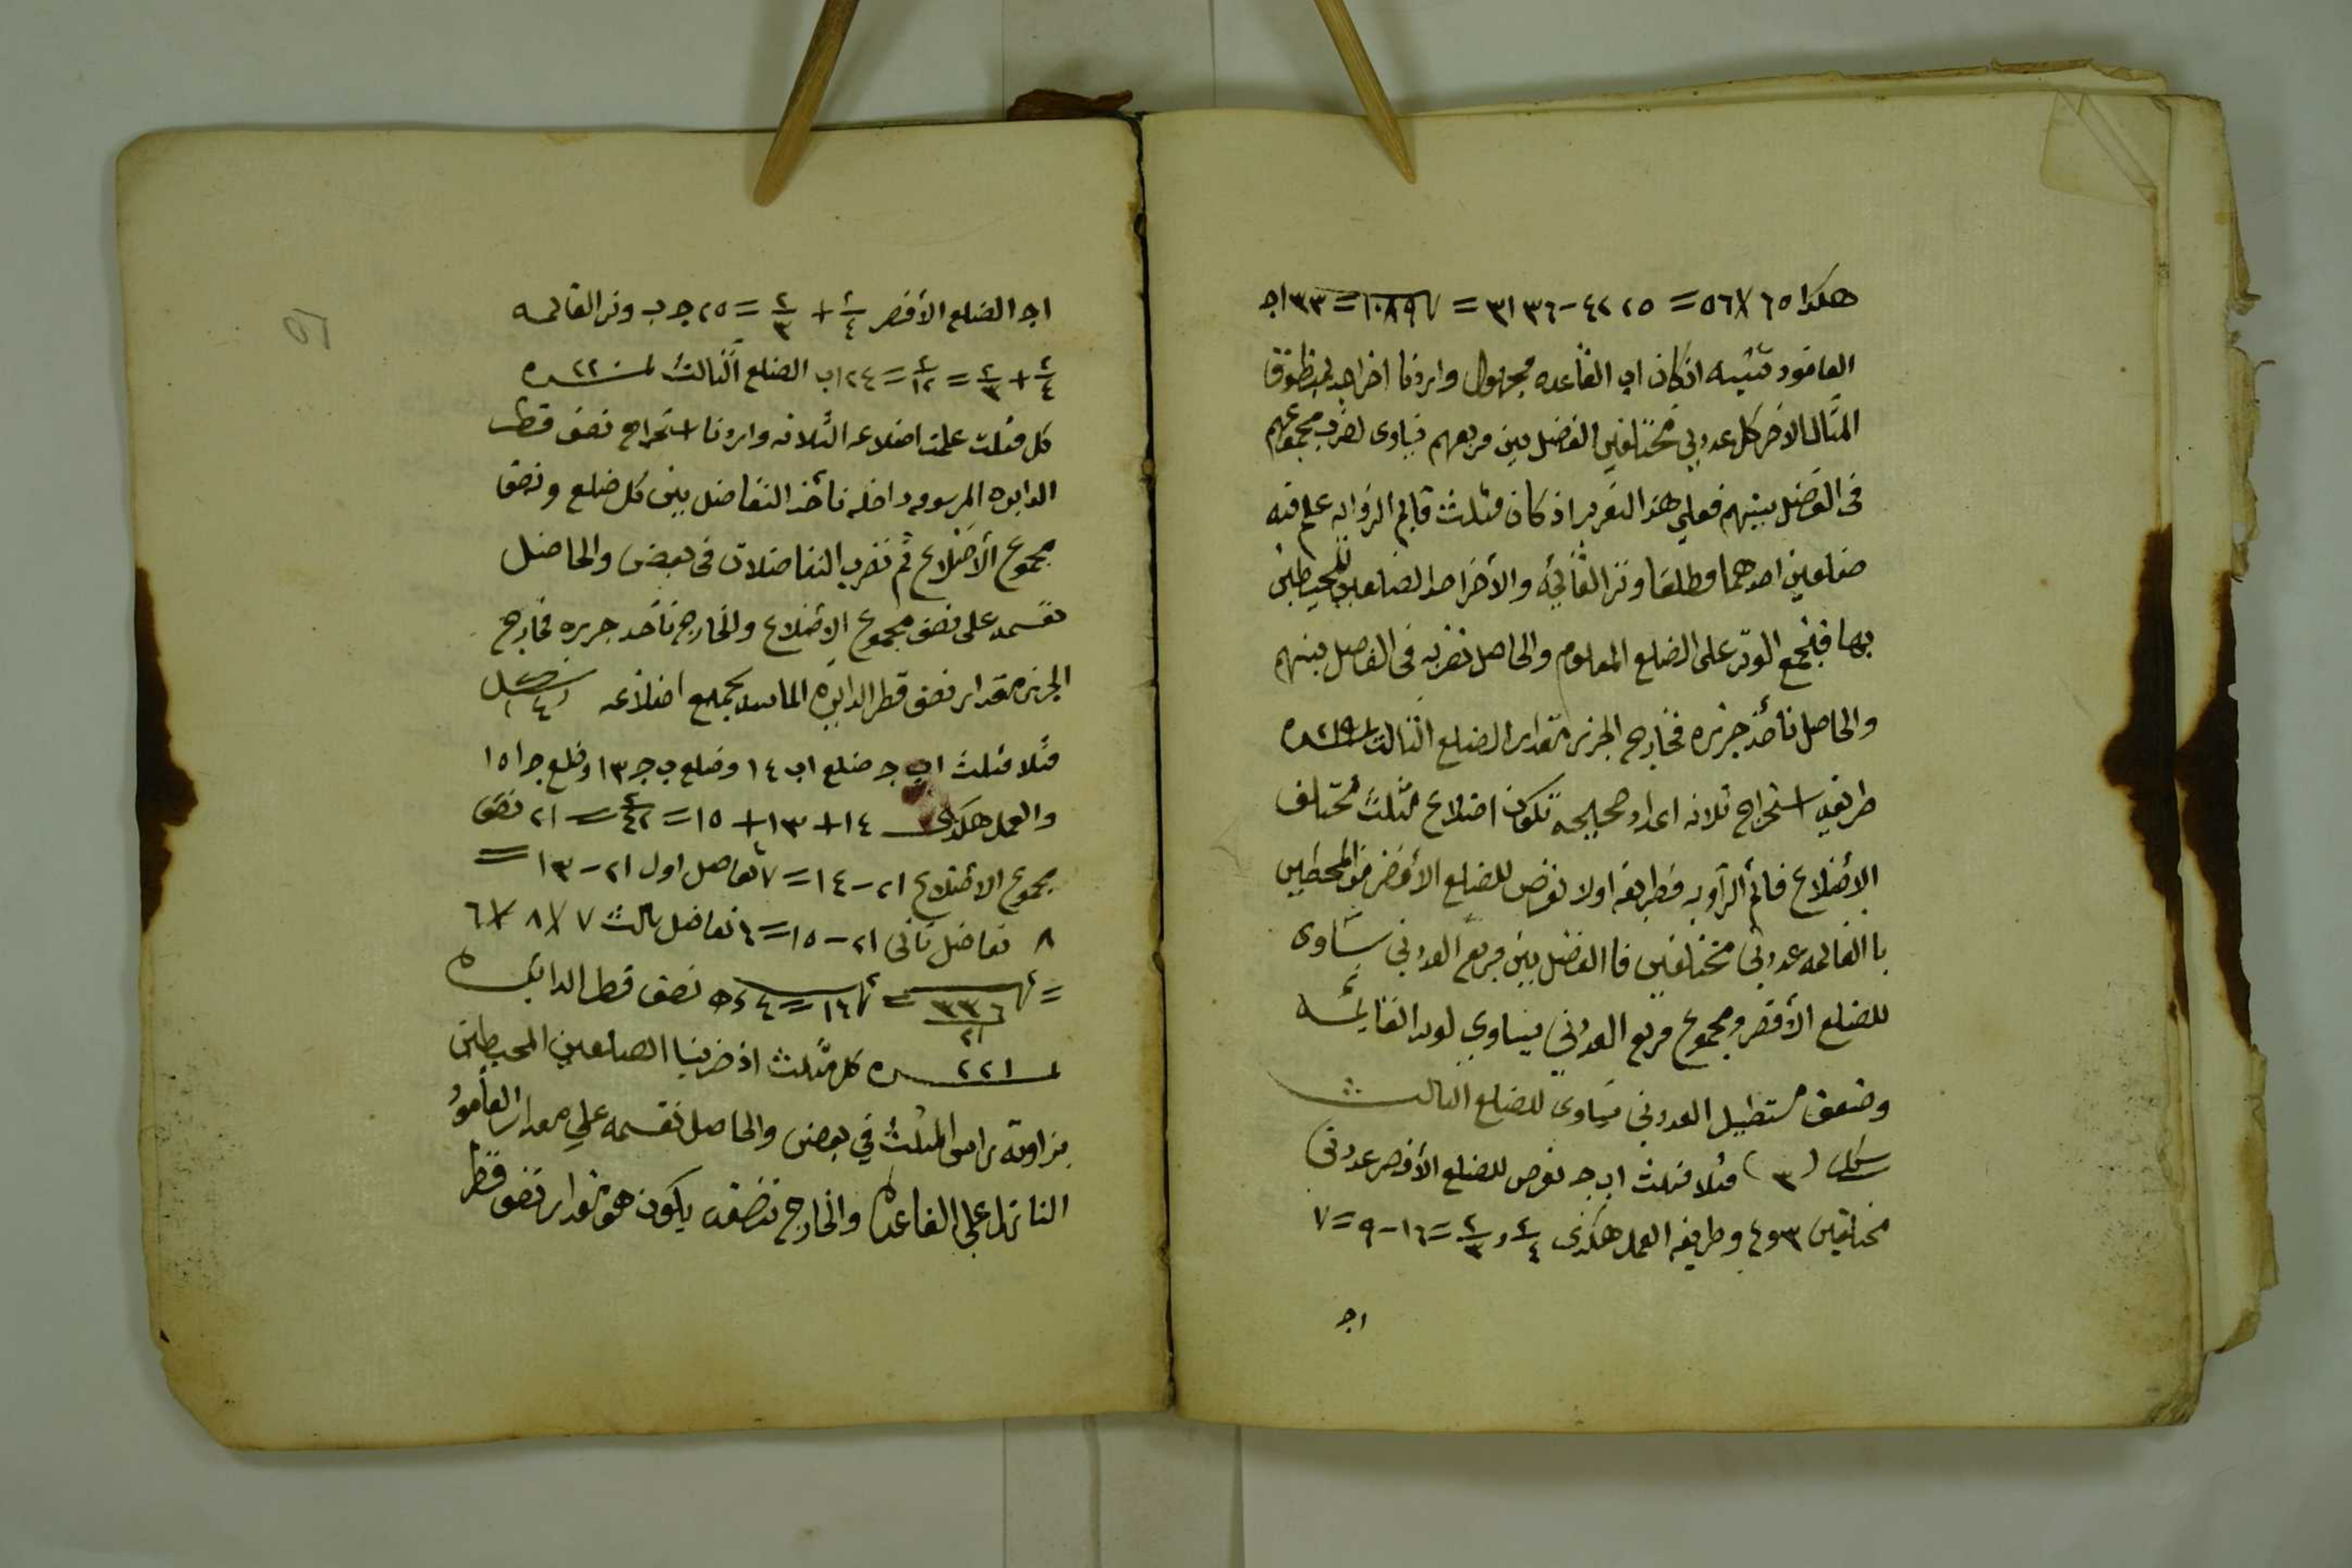 هكذا ٦٥ X ٥٦ = ٤٢٢٥ - ٣١٣٦ = √١٠٨٩ = ٣٣ اجـ
العامود تنبيه اذ كان اب القاعده مجهول واردنا اخراجه
المثال الاخر كل عددين مختلفين الفضل بين مربعهم يساوى لضرب مجموعهم
فى الفضل بينهم فعلى هذا التقرير اذ كان مثلث قايم الزوايه علم فيه
ضلعين احدهما مطلقا وتر القائمة والأخر احد الضلعين المحيطين
بها فبجمع الوتر على الضلع المعلوم والحاصل نضربه فى الفاصل بينهم
والحاصل نأخذ جزره فخارج الجزر مقدار الضلع الثالث ٢١٩
طريقه استخراج ثلاثه اعداد صحيحه تكون اضلاع مثلث مختلف
الاضلاع قائم الزاويه فطريقه اولا نفرض للضلع الأقصر من المحيطين
با القائمه عددين مختلفين فا الفضل بين مربع العددين يساوى
للضلع الأقصر ومجموع مربع العددين يساوي لوتر القائمه
وضعف مستطيل العددين يساوى للضلع الثالث
شكل (٣) مثلا مثلث اب جـ نفرض للضلع الأقصر عددين
مختلفين ٣ و ٤ وطريقه العمل هكذى ٤٢ و ٣٢ = ١٦ - ٩ = ٧
اجـ
اجـ الضلع الأقصر ٤٢ + ٣٢ = ٢٥ جـ ب وتر القائمه
٤٢ + ٣٢ = ١٢٢ = ٢٤ اب الضلع الثالث ٢٢٠
كل مثلث علمت اضلاعه الثلاثه واردنا استخراج نصف قطر
الدايره المرسومه داخله نأخذ التفاضل بين كل ضلع ونصف
مجموع الأضلاع ثم نضرب التفاضلات فى بعض والحاصل
نقسمه على نصف مجموع الاضلاع والخارج نأخذ جزره فخارج
الجزر مقدار نصف قطر الدايره الماسه بجميع اضلاعه شكل ٤
مثلا مثلث اب جـ ضلع اب ١٤ وضلع ب جـ ١٣ وضلع جـ ا ١٥
والعمل هكذى ١٤ + ١٣ + ١٥ = ٤٢ = ٢١ نصف
مجموع الاضلاع ٢١ - ١٤ = ٧ تفاضل اول ٢١ - ١٣ =
٨ تفاضل ثانى ٢١ - ١٥ = ٦ تفاضل ثالث ٧ X ٨ X ٦
= √٣٣٦/٢١ = √١٦ = ٤ نصف قطر الدايره
٢٢١ كل مثلث اذ ضربنا الضلعين المحيطين
بزاوية راس المثلث في بعض والحاصل نقسمه علي مقدار العامود
النازل علي القاعده والخارج ننصفه يكون هو مقدار نصف قطر